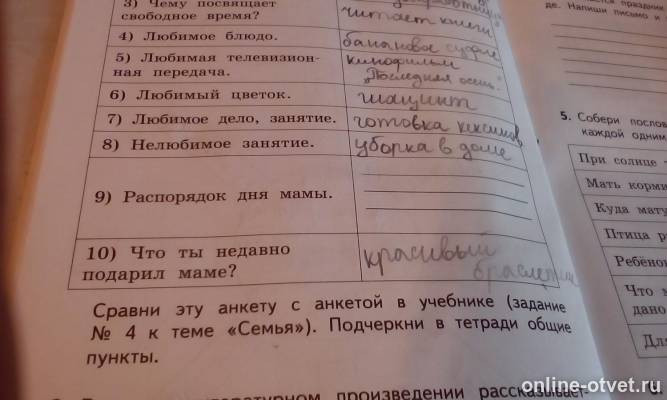 3) Чему посвящает
свободное время?
читает книги
4) Любимое блюдо.
банановое суфле
5) Любимая телевизион-
ная передача.
кинофильм
"Последняя осень"
6) Любимый цветок.
гиацинт
7) Любимое дело, занятие.
готовка кексиков
8) Нелюбимое занятие.
уборка в доме
9) Распорядок дня мамы.
10) Что ты недавно
подарил маме?
красивый
браслетик
Сравни эту анкету с анкетой в учебнике (задание
№ 4 к теме «Семья»). Подчеркни в тетради общие
пункты.
произведении рассказывает-
праздник
де. Напиши письмо и
5. Собери послов
каждой одним
При солнце
Мать корми
Куда мату
Птица р
Ребёно
Что
дано
Для
online-otvet.ru